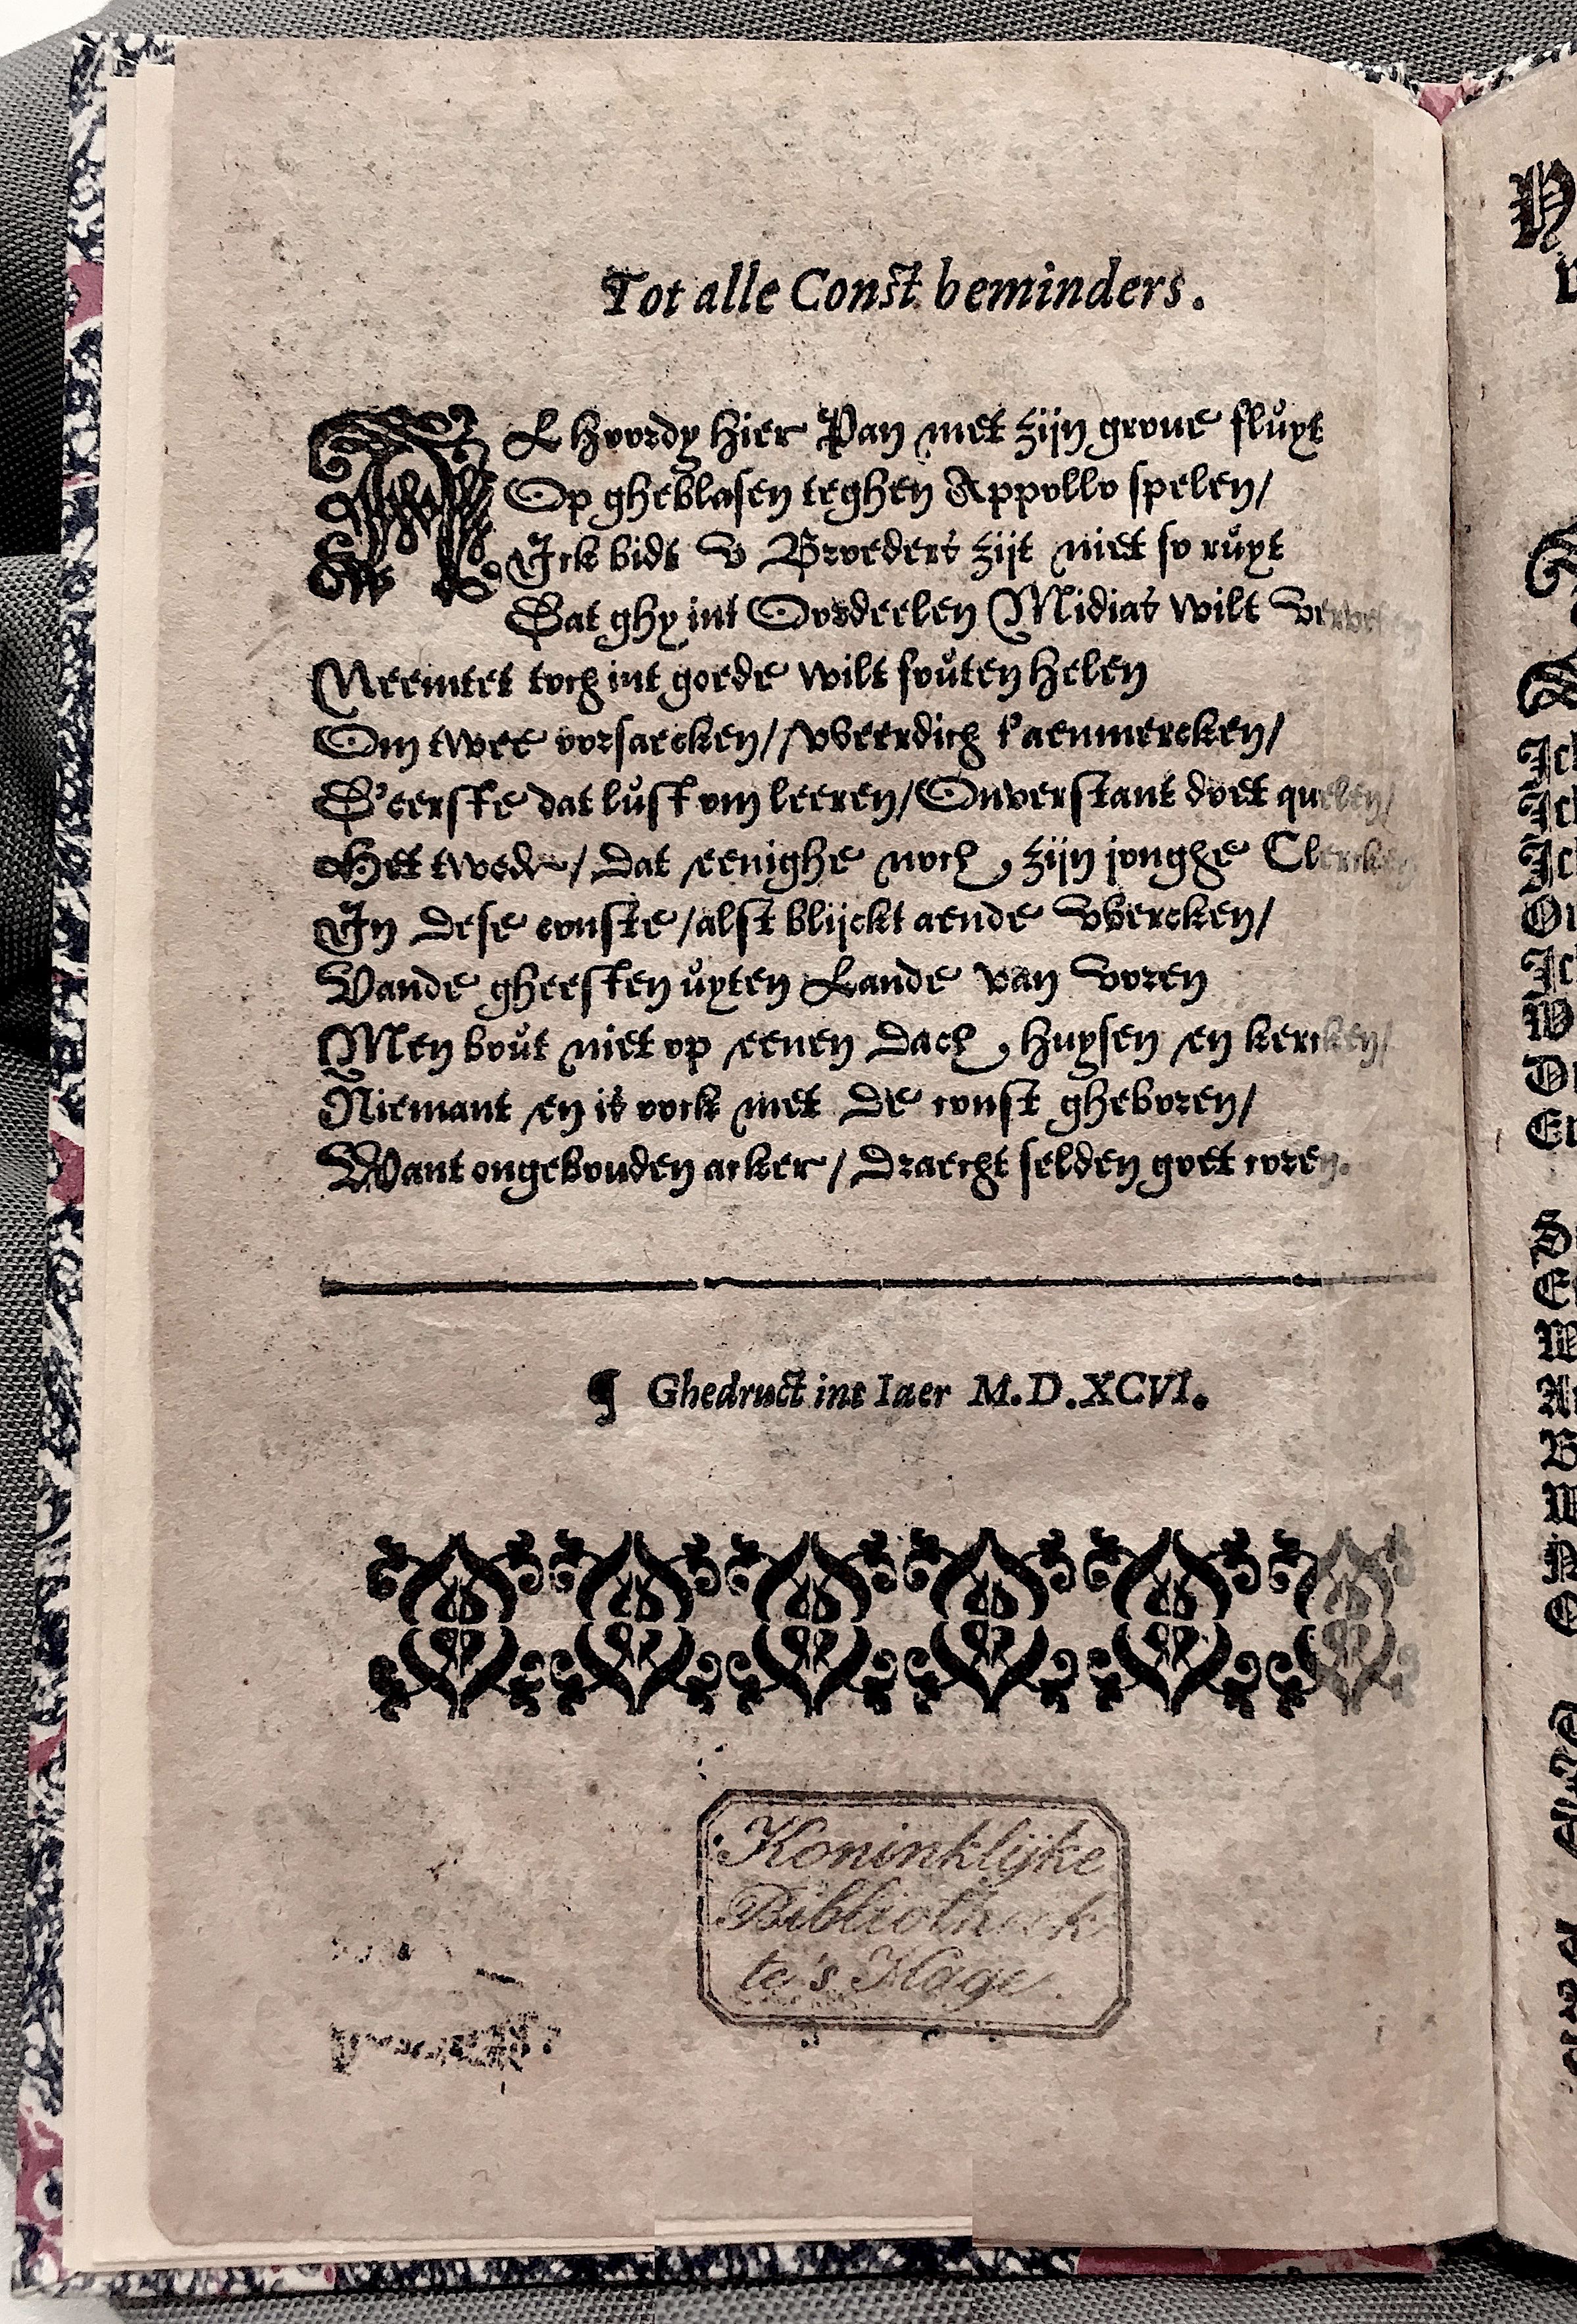 Tot alle Const beminders.
AL hoordy hier Pan met zijn groue fluyt
Op gheblasen teghen Appollo spelen/
Ick bidt v Broeders zijt niet so ruyt
Dat ghy int Oordeelen Midias wilt
Neemtet toch int goede wilt fouten helen
Om twee oorsaecken/ vveerdich t'aenmercken/
D'eerste dat lust om leeren/ Onverstant doet quelen/
Het tweede/ Dat eenighe noch zijn jonghe Clercken
In dese conste/ alst blijckt aende vvercken/
Vande gheesten uyten Lande van voren
Men bout niet op eenen Dach, huysen en kercken/
Niemant en is oock met de const gheboren/
Want ongebouden acker/ Draecht selden goet coren.
¶ Ghedruct int Iaer M.D.XCVI.
Koninklijke
Bibliotheek
te 's Hage.